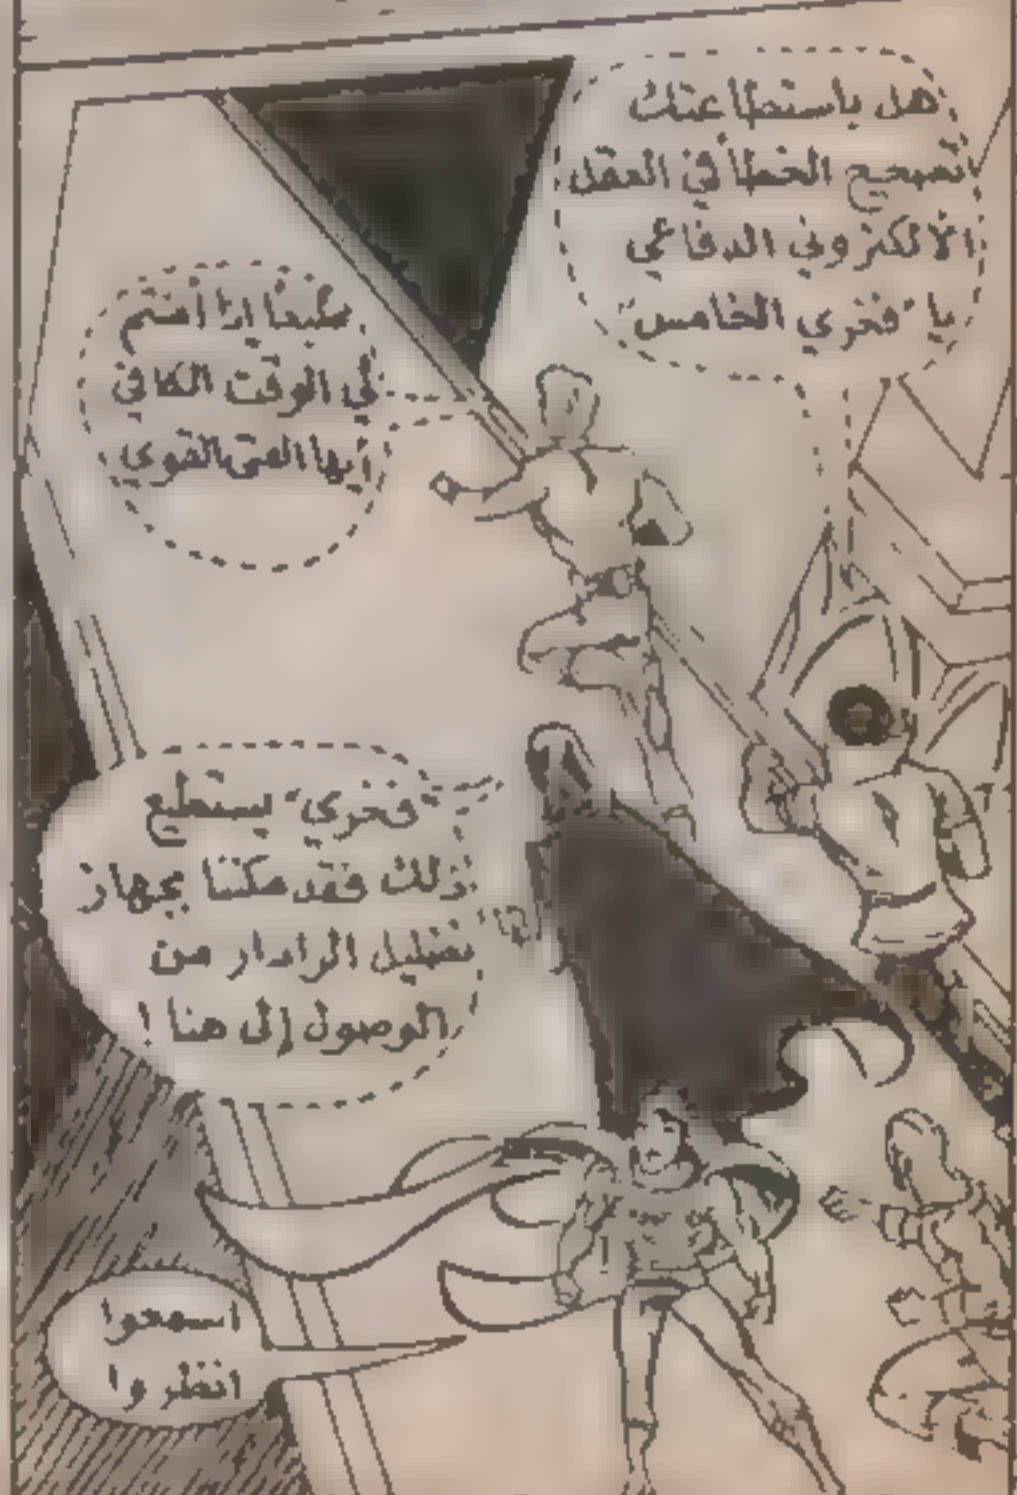 هل باستطاعتك
تصحيح الخطأ في العقل
الالكتروني الدفاعي
يا "فخري الخامس"
طبعاً اذا أمنتم
لي الوقت الكافي
أيها الفتى القوي
"فخري" يستطيع
ذلك فقد مكننا بجهاز
تضليل الرادار من
الوصول إلى هنا !
اسمعوا
انظروا